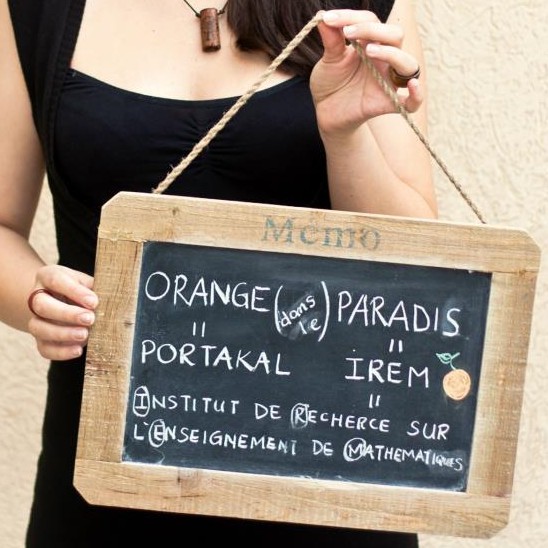 Memo
ORANGE (dans le) PARADIS
" "
PORTAKAL İREM
"
INSTITUT DE RECHERCE SUR
L'ENSEIGNEMENT DE MATHEMATIQUES